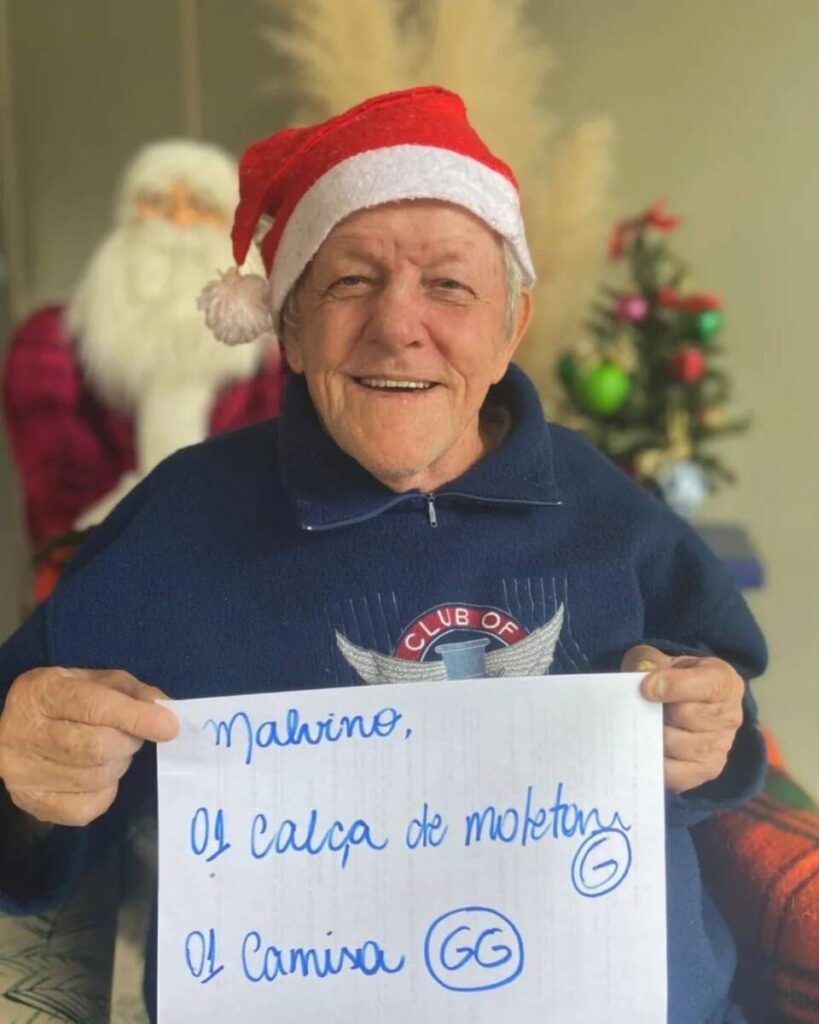 CLUB OF
Malvino,
01 calça de moletom
G
01 Camisa GG